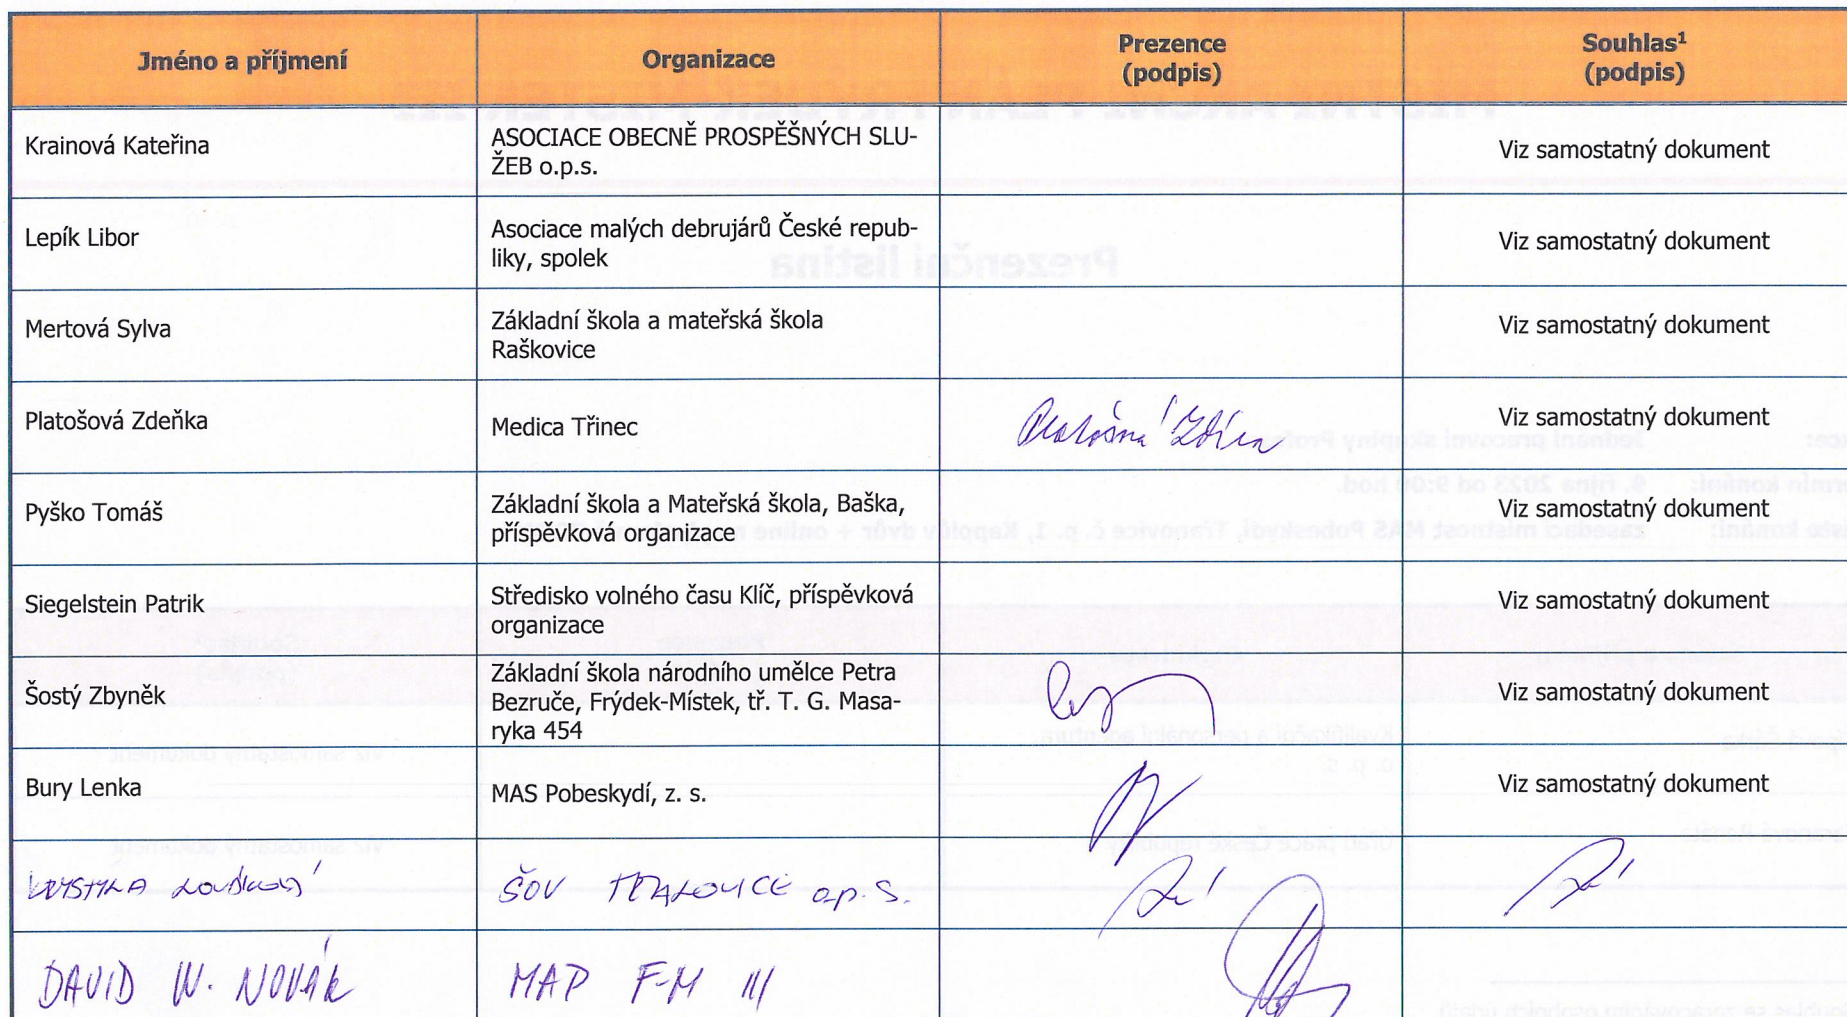 Jméno a příjmení Organizace Prezence (podpis) Souhlas¹ (podpis)
Krainová Kateřina
ASOCIACE OBECNĚ PROSPĚŠNÝCH SLU-
ŽEB o.p.s.
Viz samostatný dokument
Lepík Libor
Asociace malých debrujárů České repub-
liky, spolek
Viz samostatný dokument
Mertová Sylva
Základní škola a mateřská škola
Raškovice
Viz samostatný dokument
Platošová Zdeňka
Medica Třinec
Viz samostatný dokument
Pyško Tomáš
Základní škola a Mateřská škola, Baška,
příspěvková organizace
Viz samostatný dokument
Siegelstein Patrik
Středisko volného času Klíč, příspěvková
organizace
Viz samostatný dokument
Šostý Zbyněk
Základní škola národního umělce Petra
Bezruče, Frýdek-Místek, tř. T. G. Masa-
ryka 454
Viz samostatný dokument
Bury Lenka
MAS Pobeskydí, z. s.
Viz samostatný dokument
ŠOV o.p.s.
DAVID W. NOVÁK
MAP F-M III